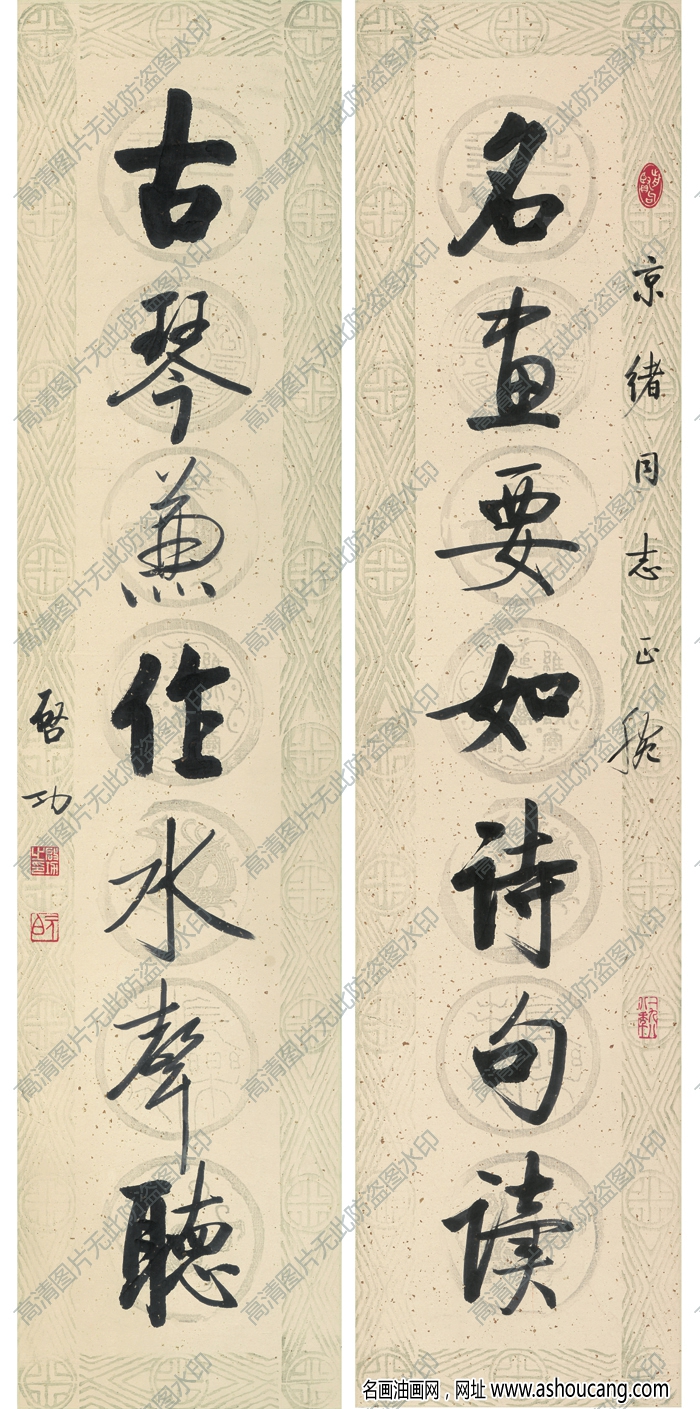 京绪同志正腕
名画要如诗句读
古琴兼作水声聽
啓功
高清图片无此防盗图水印
名画油画网，网址 www.ashoucang.com